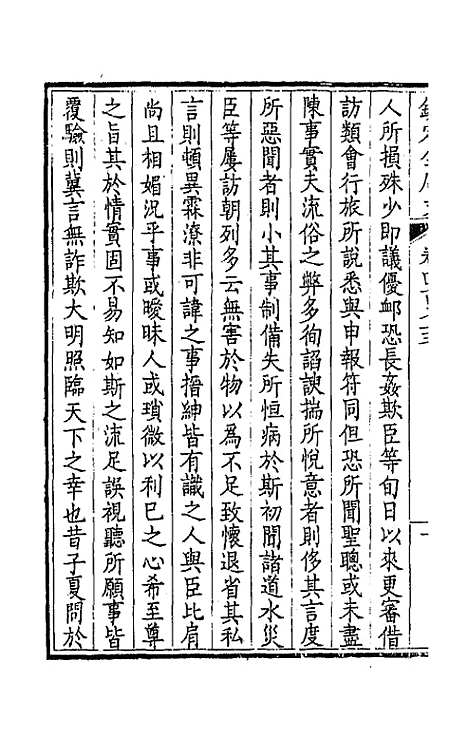 人所損殊少即議優邺恐長姦欺臣等旬日以來更審借
訪類會行旅所說悉與申報符同但恐所聞聖聰或未盡
陳事實夫流俗之弊多徇諂諛揣所悅意者則侈其言度
所惡聞者則小其事制備失所恒病於斯初聞諸道水災
臣等屢訪朝列多云無害於物以為不足致懷退省其私
言則頓異霖潦非可諱之事搢紳皆有識之人與臣比肩
尚且相媚況乎事或曖昧人或瑣微以利己之心希至尊
之旨其於情實固不易知如斯之流足誤視聽所願事皆
覆驗則冀言無詐欺大明照臨天下之幸也昔子夏問於